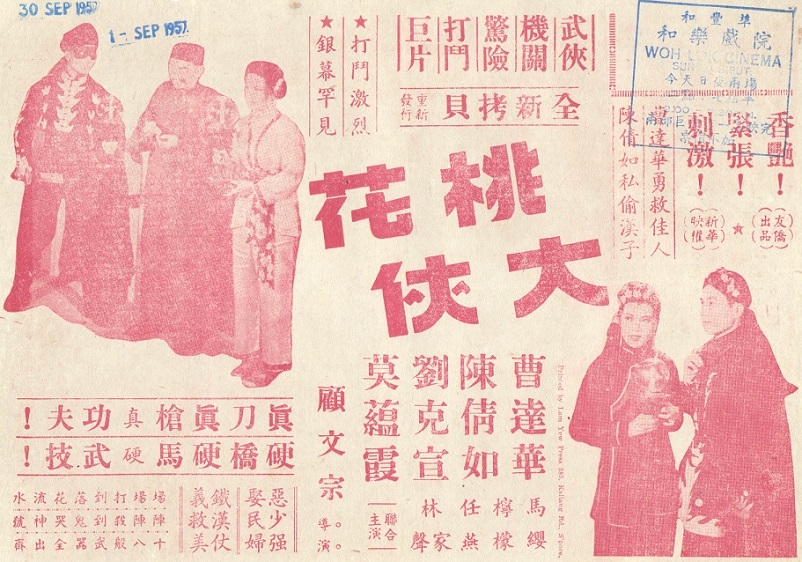 30 SEP 1957
1 - SEP 1957
和豐埠
和樂戲院
WOH LOK CINEMA
今天日夜兩場
香艷!
緊張!
刺激!
友僑出品
新華映催
曹達華勇救佳人
陳倩如私偷漢子
武俠
機關
驚險
打鬥
巨片
全新拷貝
重新發行
★打鬥激烈
★銀幕罕見
桃花
大俠
曹達華
陳倩如
劉克宣
莫蘊霞
馬纓
檸檬
任燕
林家聲
聯合主演
顧文宗。導演。
Printed by Lam Yew Press 283, Kallang Rd. S'pore.
眞刀眞槍真功夫!
硬橋硬馬硬武技!
惡少强娶民婦
鐵漢仗義救美
場場打到落花流水
陣陣殺到鬼哭神號
十八般武器全出